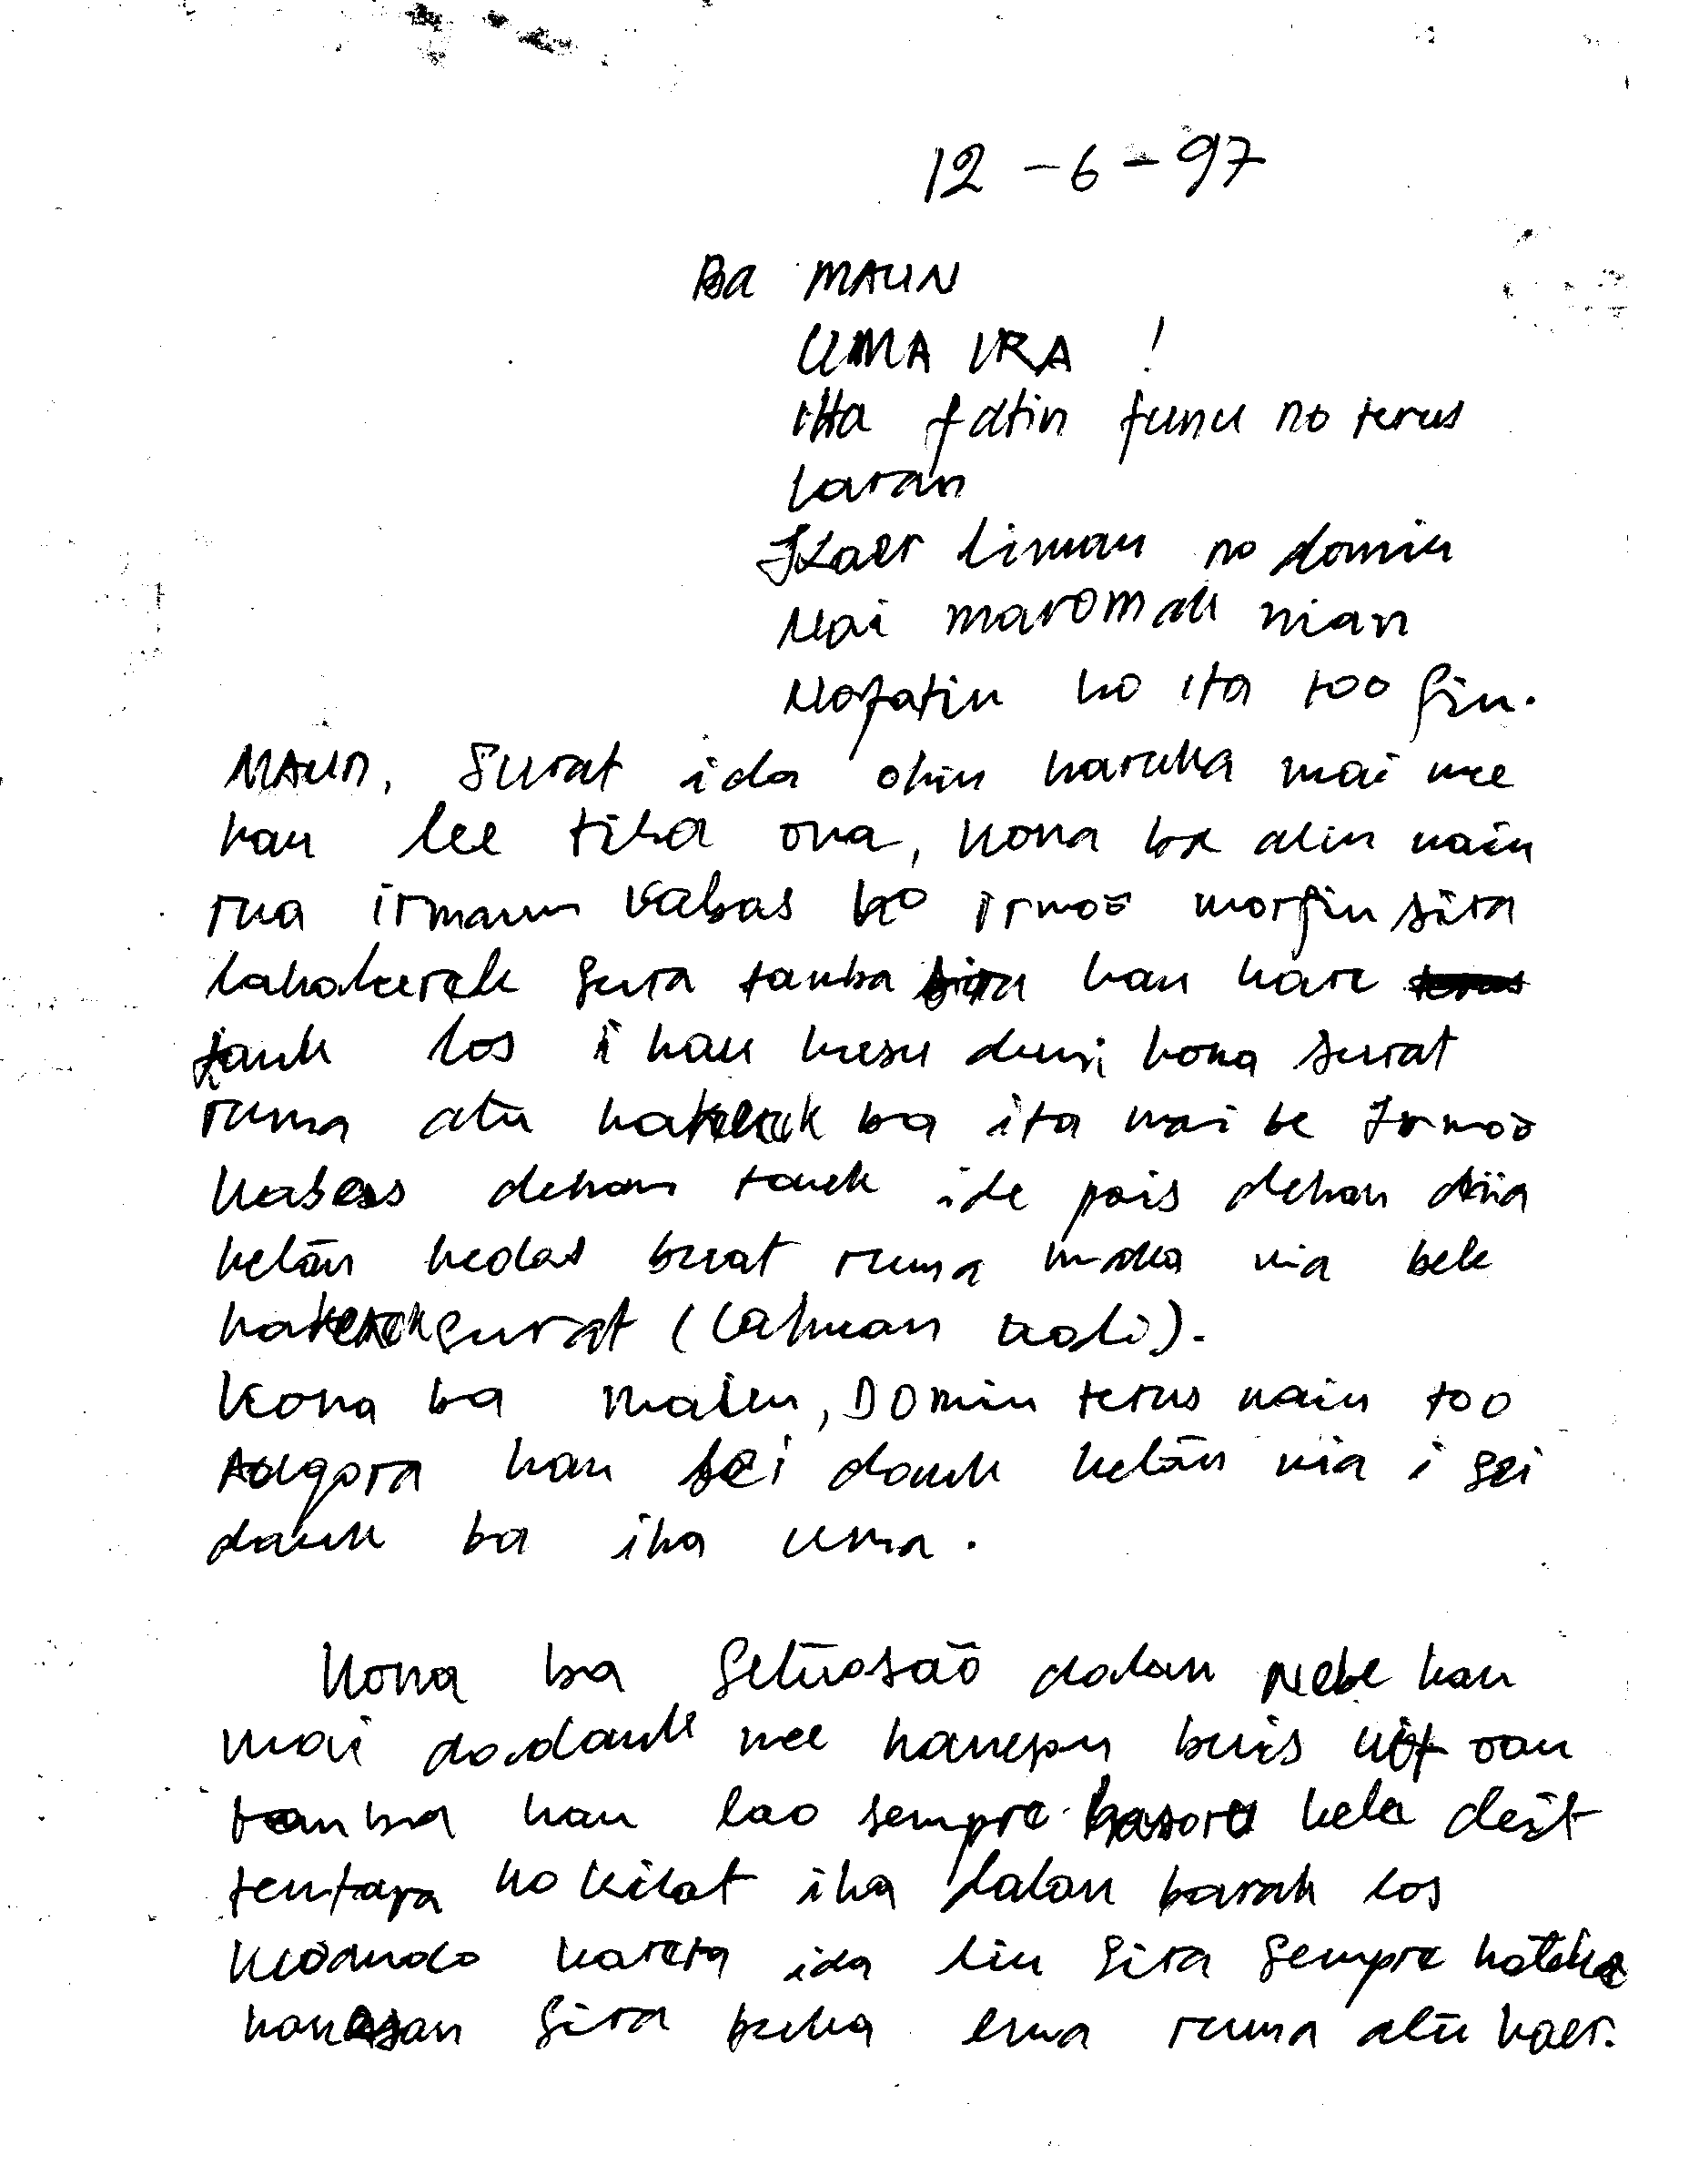 12-6-97
Ba MAUN
UMA IRA !
itta fatin funu no terus
Laran
Kaer liman no domin
Nai maromak nian
Nofatin ho ita too fin.
MAUN, Surat ida ohin haruka mai nee
hau lee tiha ona, kona ba alin nain
rua irmaun Kabas ho irmoo morfin sira
lahakerek sura tanba sira hau hare
tauk los i hau husu dusi kona surat
ruma atu hakerek ba ita mai be Irmoo
Kabas dehan tauk ide pois dehan diia
kelan hedas buat ruma maka nia bele
hakerek surat (Lahuan kodi).
Kona ba malen, Domin terus nain too
Adgora hau sei dauk kelan nia i sei
dauk ba iha uma.
Kona ba Setuosaõ dalan Nebe hau
mai daudauk nee hanepn buis uit oan
tanba hau lao sempre hasoru hela deit
tentara ho kilat iha dalan barak los
Kuandu kareta ida liu sira sempre hateke
hanesan sira buka ema ruma atu kaer.